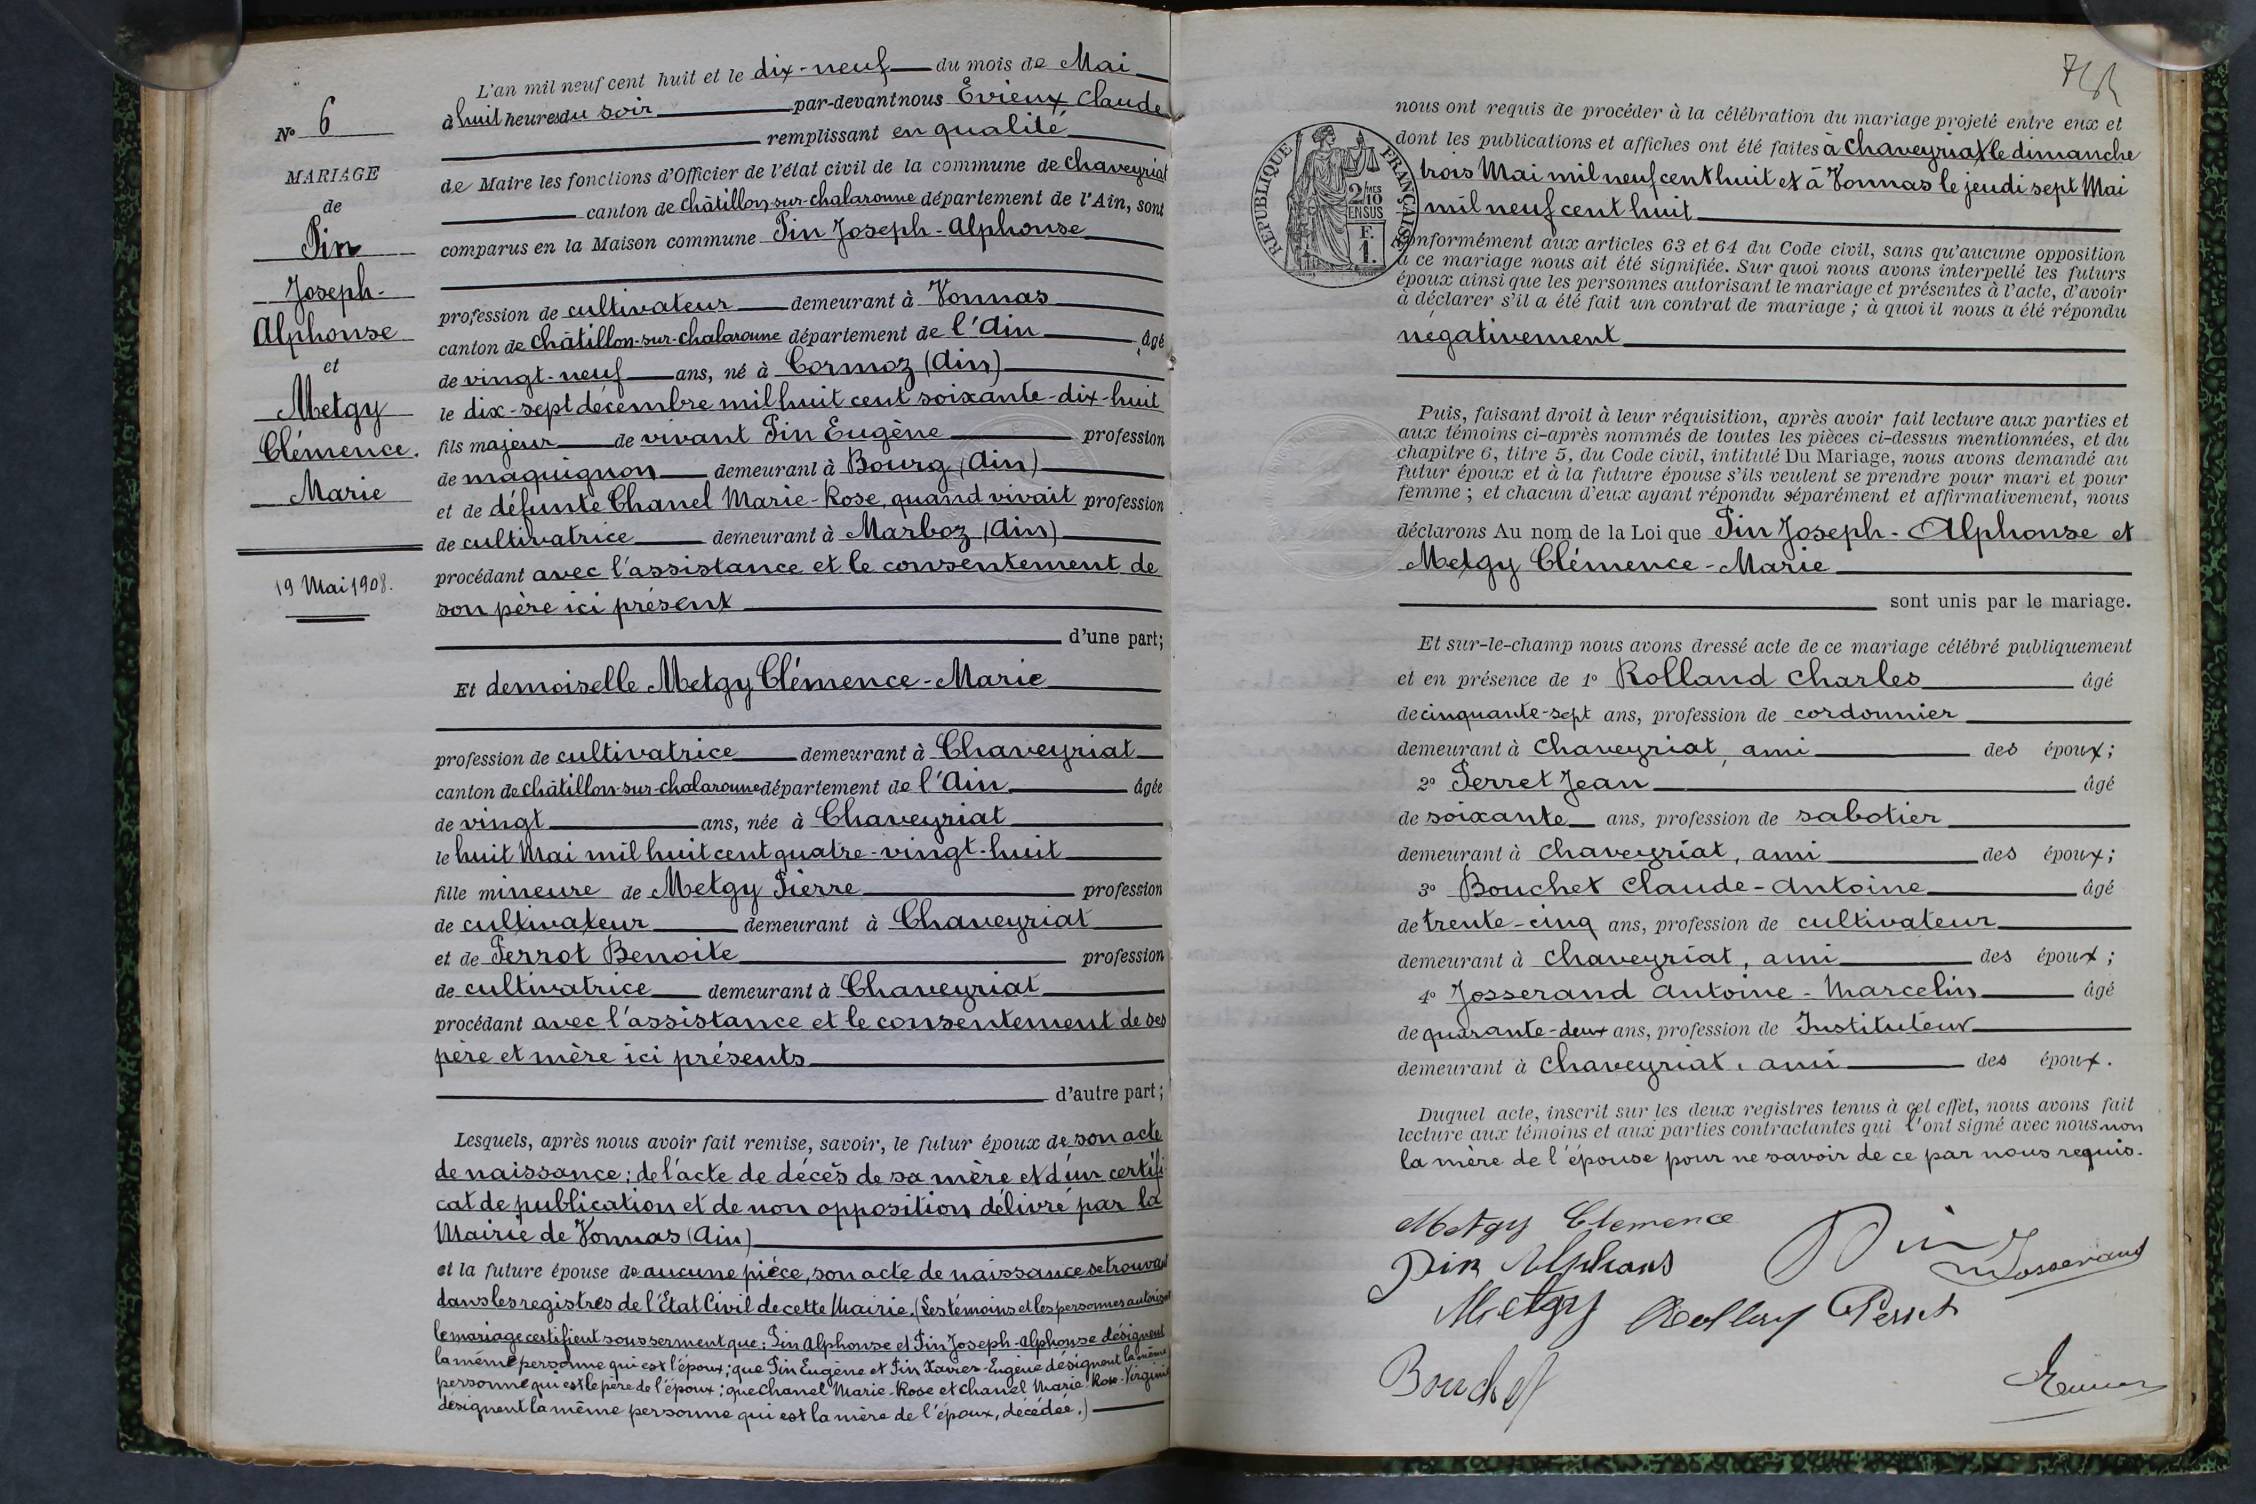 N° 6
MARIAGE
de
Pin
Joseph-
Alphonse
et
Metgy
Clémence.
Marie
19 Mai 1908.
L'an mil neuf cent huit et le dix-neuf du mois de Mai
à huit heures du soir par-devant nous Evieux Claude
remplissant en qualité
de Maire les fonctions d'Officier de l'état civil de la commune de Chaveyriat
canton de Châtillon-sur-chalaronne département de l'Ain, sont
comparus en la Maison commune Pin Joseph-Alphonse
profession de cultivateur demeurant à Vonnas
canton de Châtillon-sur-chalaronne département de l'Ain âgé
de vingt-neuf ans, né à Cormoz (Ain)
le dix-sept décembre mil huit cent soixante-dix-huit
fils majeur de vivant Pin Eugène profession
de maquignon demeurant à Bourg (Ain)
et de défunte Chanel Marie-Rose, quand vivait profession
de cultivatrice demeurant à Marboz (Ain)
procédant avec l'assistance et le consentement de
son père ici présent
d'une part;
Et demoiselle Metgy Clémence-Marie
profession de cultivatrice demeurant à Chaveyriat
canton de châtillon-sur-chalaronne département de l'Ain âgée
de vingt ans, née à Chaveyriat
le huit Mai mil huit cent quatre-vingt-huit
fille mineure de Metgy Pierre profession
de cultivateur demeurant à Chaveyriat
et de Perrot Benoite profession
de cultivatrice demeurant à Chaveyriat
procédant avec l'assistance et le consentement de ses
père et mère ici présents
d'autre part;
Lesquels, après nous avoir fait remise, savoir, le futur époux de son acte
de naissance; de l'acte de décès de sa mère et d'un certifi
cat de publication et de non opposition délivré par la
Mairie de Vonnas (Ain)
et la future épouse de aucune pièce, son acte de naissance se trouvant
dans les registres de l'Etat Civil de cette Mairie. (Les témoins et les personnes autorisant
le mariage certifient sous serment que: Pin Alphonse et Pin Joseph-Alphonse désignent
la même personne qui est l'époux; que Pin Eugène et Pin Xavier-Eugène désignent la même
personne qui est le père de l'époux; que Chanel Marie-Rose et Chanel Marie-Rose-Virginie
désignent la même personne qui est la mère de l'époux, décédée.)
RÉPUBLIQUE FRANÇAISE
2/10
EN SUS
F.
1.
nous ont requis de procéder à la célébration du mariage projeté entre eux et
dont les publications et affiches ont été faites à Chaveyriat le dimanche
trois Mai mil neuf cent huit et à Vonnas le jeudi sept Mai
mil neuf cent huit
conformément aux articles 63 et 64 du Code civil, sans qu'aucune opposition
à ce mariage nous ait été signifiée. Sur quoi nous avons interpellé les futurs
époux ainsi que les personnes autorisant le mariage et présentes à l'acte, d'avoir
à déclarer s'il a été fait un contrat de mariage; à quoi il nous a été répondu
négativement
Puis, faisant droit à leur réquisition, après avoir fait lecture aux parties et
aux témoins ci-après nommés de toutes les pièces ci-dessus mentionnées, et du
chapitre 6, titre 5, du Code civil, intitulé Du Mariage, nous avons demandé au
futur époux et à la future épouse s'ils veulent se prendre pour mari et pour
femme; et chacun d'eux ayant répondu séparément et affirmativement, nous
déclarons Au nom de la Loi que Pin Joseph-Alphonse et
Metgy Clémence-Marie
sont unis par le mariage.
Et sur-le-champ nous avons dressé acte de ce mariage célébré publiquement
et en présence de 1° Rolland Charles âgé
de cinquante-sept ans, profession de cordonnier
demeurant à Chaveyriat, ami des époux;
2° Perret Jean âgé
de soixante ans, profession de sabotier
demeurant à Chaveyriat, ami des époux;
3° Bouchet Claude-Antoine âgé
de trente-cinq ans, profession de cultivateur
demeurant à Chaveyriat, ami des époux;
4° Josserand Antoine-Marcelin âgé
de quarante-deux ans, profession de Instituteur
demeurant à Chaveyriat, ami des époux.
Duquel acte, inscrit sur les deux registres tenus à cet effet, nous avons fait
lecture aux témoins et aux parties contractantes qui l'ont signé avec nous non
la mère de l'épouse pour ne savoir de ce par nous requis.
Metgy Clemence
Pin
Pin Alphons
Josserand
Metgy
Perret
Bouchet